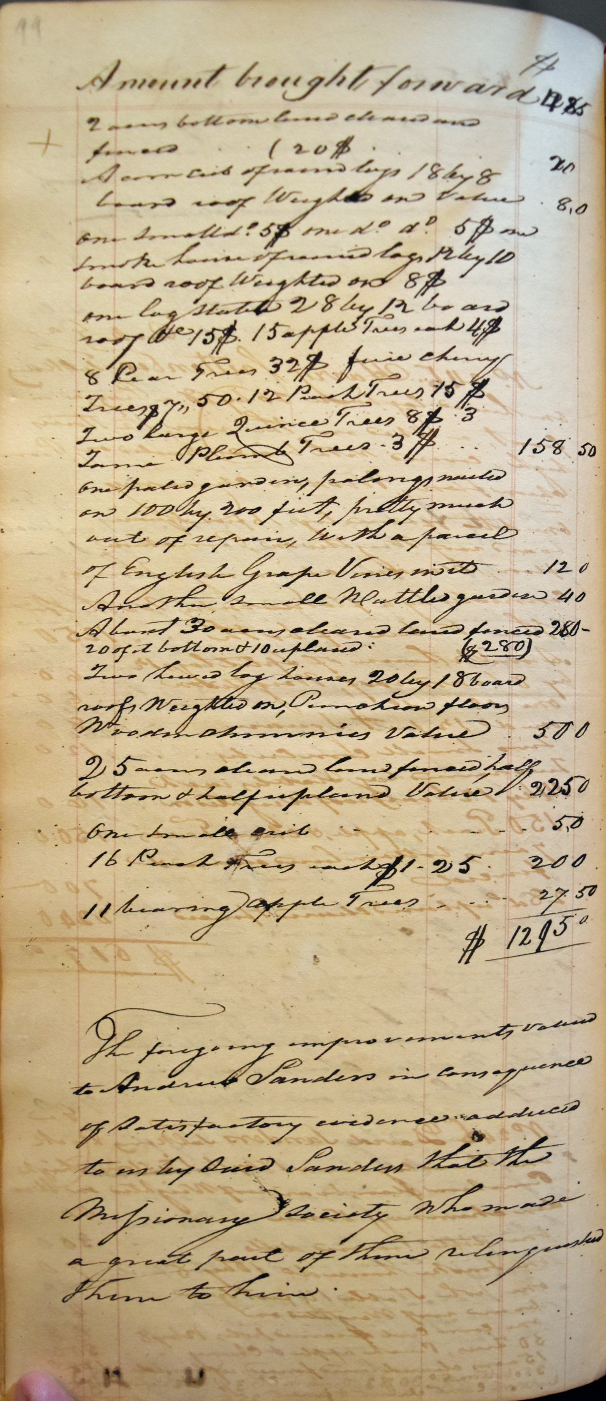 99
Amount brought forward $
2 acres bottom land cleared and
fenced (20$ 20
A corn crib of round logs 18 by 8
board roof Weighted on Value 8,0
one small do. 5$ one do do. 5$ one
smoke house of round logs 12 by 10
board roof Weighted on 8$
one log stable 28 by 12 board
roof &c 15$. 15 apple Trees each 4$
8 Pear Trees 32$ five cherry
Trees $7,,50. 12 Peach Trees 15$
Two large Quince Trees 8$ 3
Tame Plumb Trees. 3$ 158 50
One paled garden, palongs nailed
on 100 by 200 feet, pretty much
out of repair, With a parcel
of English Grape Vines in it 120
Another small Wattled garden 40
About 30 acres cleared land fenced 280-
20 of it bottom & 10 upland: ($280)
Two hewed log houses 20 by 18 board
roofs Weighted on, Puncheon floors
Wooden chimnies Value 500
25 acres clean land fenced, half
bottom & half upland Value 2250
One small crib 5,0
16 Peach Trees each $1-25 200
11 bearing apple Trees 27 50
$
The foregoing improvements valued
to Andrew Sanders in consequence
of Satisfactory evidence adduced
to us by Said Sanders that the
Missionary Society Who made
a great part of them relinquished
them to him.